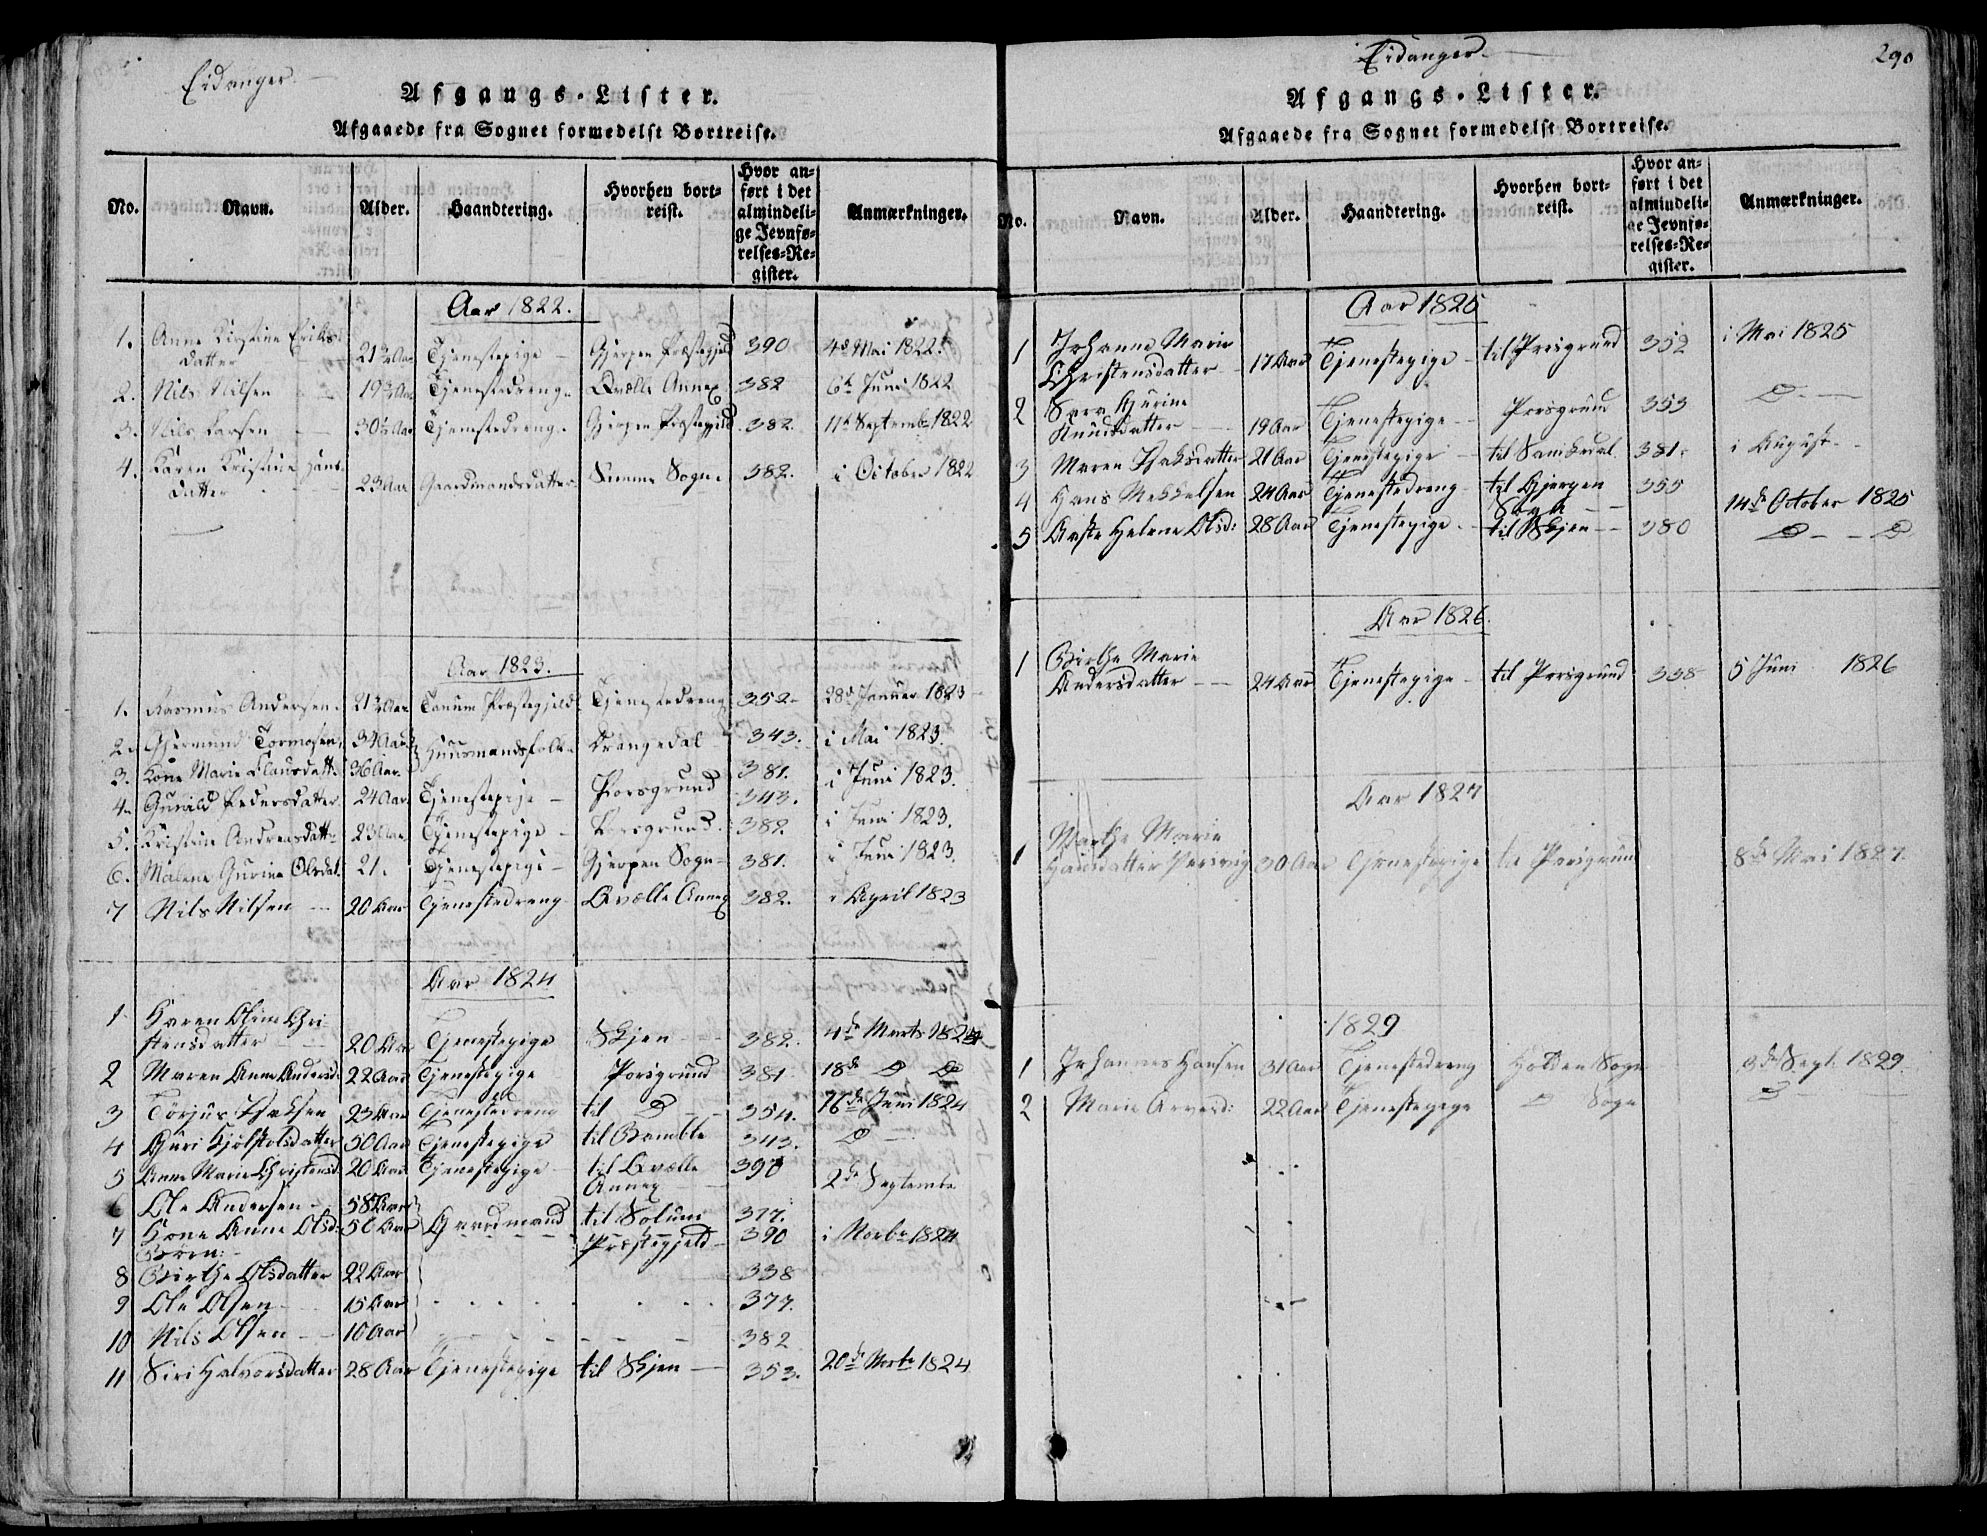 Eidanger.
Afgangs-Lister.
Afgaaede fra Sognet formedelst Bortreise.
No. Navn. Alder. Haandtering. Hvorhen bortreist. Hvor anført i det almindelige Jevnførelses-Register. Anmærkninger.
Aar 1822.
1. Anne Kirstine Eriks-
datter 21 Aar Tjenestepige Gjerpen Præstegjeld 390 4d Mai 1822.
2. Nils Nilsen 19 Aar Tjenestedreng Qvælle Annex 382 6te Juni 1822
3. Nils Larsen 30½ Aar Tjenestedreng. Gjerpen Præstegjeld 382. 11te Septembr 1822
4. Karen Kristine Hans-
datter 23 Aar Gaardmandsdatter Sogn. 382. i October 1822
Aar 1823.
1. Rasmus Andersen. 21½ Aar Tanum Præstegjeld Tjenestedreng 352. 28d Januar 1823
2. Gjermund Tormosen, 34 Aar Huusmandsfolk Drangedal 343. i Mai 1823.
3. Kone Marie Clausdatt. 36 Aar. 381.
4. Gunild Pedersdatter 24 Aar Tjenestepige Porsgrund 343. i Juni 1823.
5. Kristine Andreasdatt. 23 Aar Tjenestepige Porsgrund. 382. i Juni 1823.
6. Malene Gurine Olsdat. 21. Tjenestepige Gjerpen Sogn 381. i Juni 1823.
7 Nils Nilsen 20 Aar Tjenestedreng Qvælle Annex 382. i April 1823
Aar 1824
1 Karen Oline Chri-
stensdatter 20 Aar Tjenestepige Skjen 382. 4de Marts 1824
2 Maren Anne Andersd: 22 Aar Tjenestepige Porsgrund 381 18de D D
3 Torjus Isaksen 23 Aar Tjenestedreng til D 354. 16de Juni 1824
4 Guri Kjølstolsdatter 50 Aar Tjenestepige til Bamble 343. D
5 Anne Marie Christensd. 20 Aar Tjenestepige til Qvælle 390
Annex 2de Septembr
6 Ole Andersen 58 Aar Gaardmand til Solum 377.
7 Kone Anne Olsd: 50 Aar Præstegjeld 390 i Novbr 1824
Børn:
8 Birthe Olsdatter 22 Aar 338
9 Ole Olsen 15 Aar 377.
10 Nils Olsen 10 Aar 382
11 Siri Halvorsdatter 28 Aar Tjenestepige til Skjen 353. 20de 1824
Eidanger.
290
Afgangs-Lister.
Afgaaede fra Sognet formedelst Bortreise.
No. Navn. Alder. Haandtering. Hvorhen bortreist. Hvor anført i det almindelige Jevnførelses-Register. Anmærkninger.
Aar 1825
1 Johanne Marie
Christensdatter 17 Aar Tjenestepige til Porsgrund 352 i Mai 1825
2 Sara Gurine
Knudsdatter 19 Aar Tjenestepige Porsgrund 353 D
3 Maren Isaksdatter 21 Aar Tjenestepige til 381. i August
4 Hans Mekkelsen 24 Aar Tjenestedreng til Gjerpen 355
Sogn 14de October 1825
5 Aaste Helene Olsd: 28 Aar Tjenestepige til Skjen 380 D D
Aar 1826.
1 Birthe Marie
Andersdatter 24 Aar Tjenestepige til Porsgrund 338 5 Juni 1826
Aar 1827
1 Marthe Marie
Hansdatter 30 Aar Tjenestepige til Porsgrund 8de Mai 1827.
1829
1 Johannes Hansen 31 Aar Tjenestedreng Holden Sogn 3de Sept. 1829.
2 Marie 22 Aar Tjenestepige D Sogn D